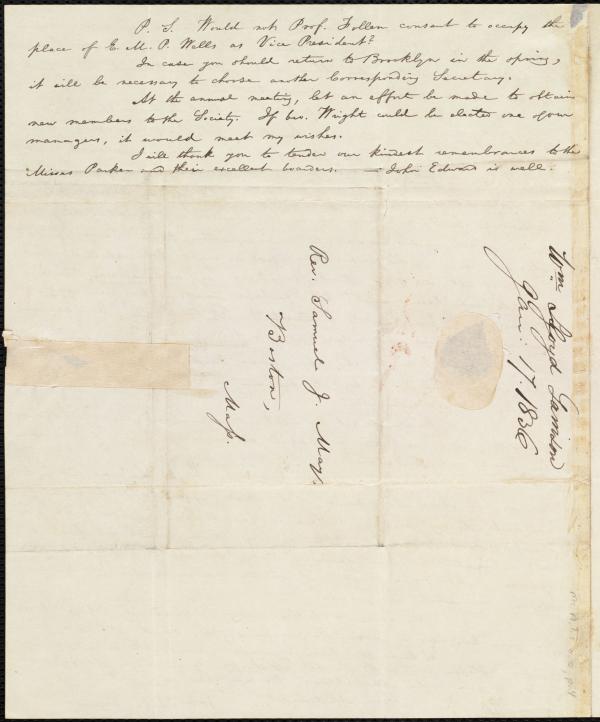 P. S. Would not Prof. Follen consent to occupy the
place of E. M. P. Wells as Vice President?
In case you should return to Brooklyn in the spring,
it will be necessary to chose another Corresponding Secretary.
At the annual meeting, let an effort be made to obtain
new members to the Society. If bro. Wright could be elected one of our
managers, it would meet my wishes.
I will thank you to tender our kindest remembrances to the
Misses Parker and their excellent boarders. — John Edward is well.
Rev. Samuel J. May,
Boston,
Mass.
Wm. Lloyd Garrison
Jan: 17. 1836